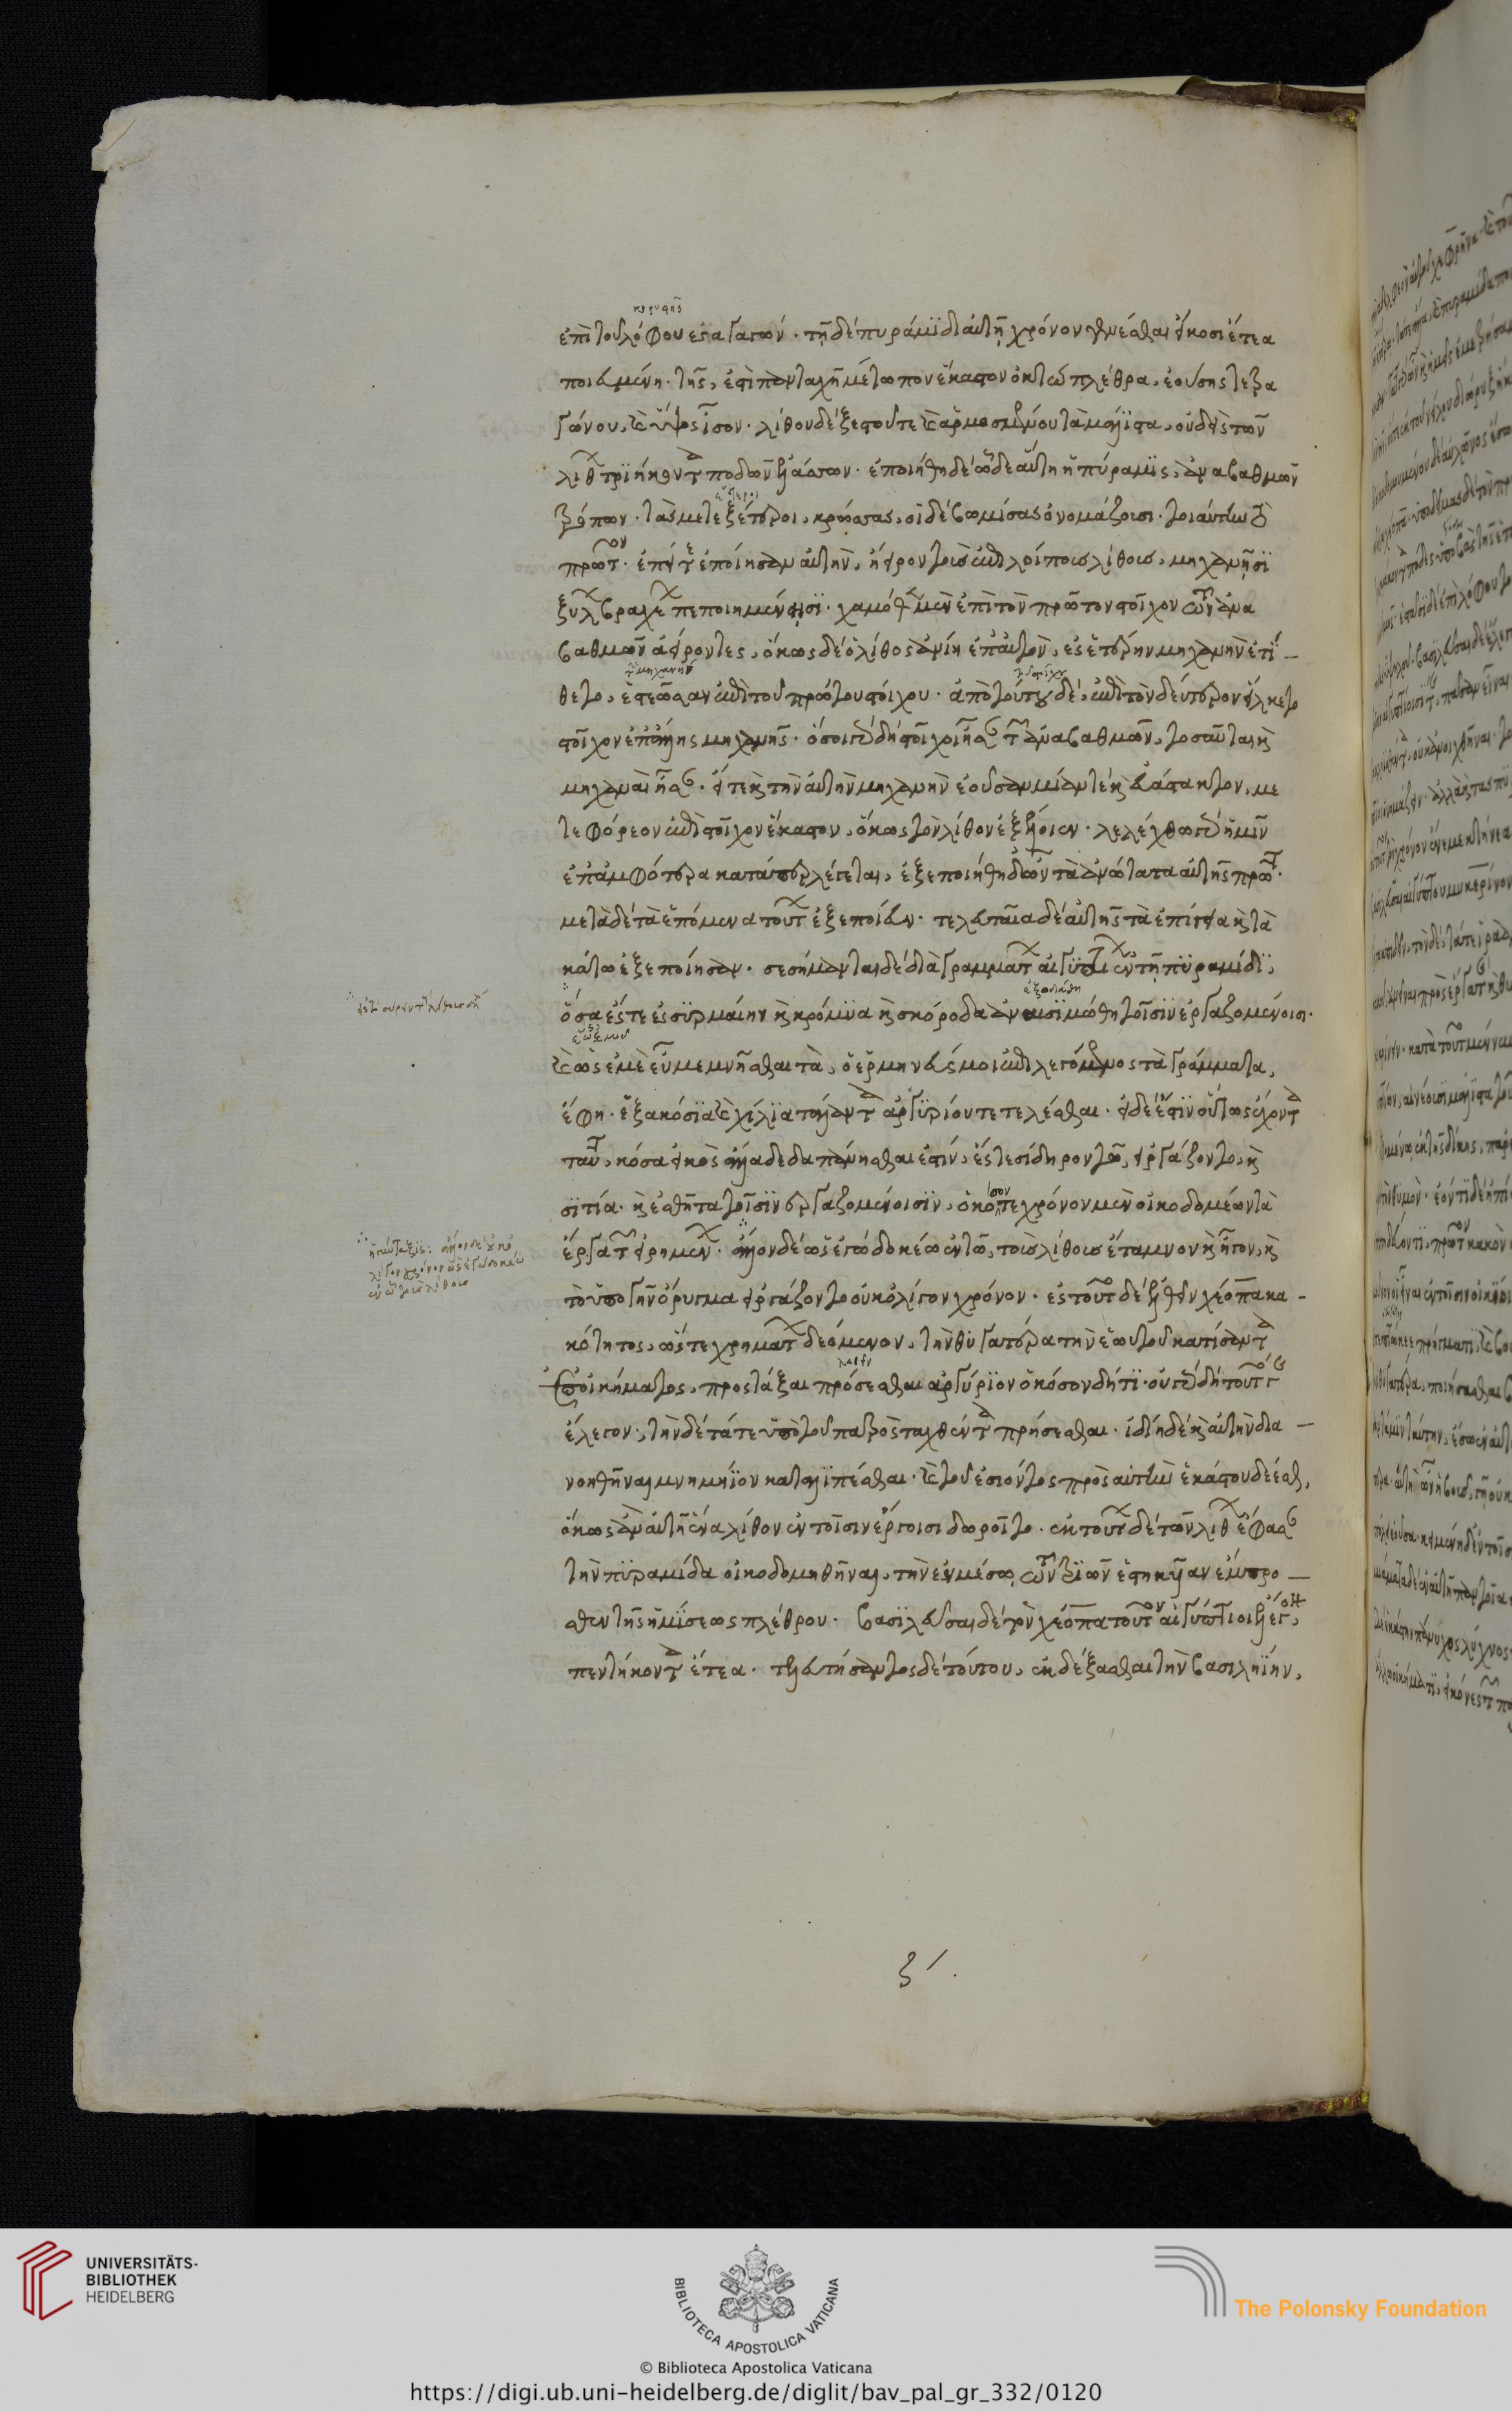 κορυφῆς
ἐπὶ τοῦ λόφου ἐς ἀγαγὼν· τῇ δὲ πυραμίδι αὐτῇ χρόνον γενέσθαι εἴκοσι ἔτεα
ποιευμένῃ· τῆς, ἐστὶ πανταχῇ μέτωπον ἕκαστον ὀκτὼ πλέθρα, ἐούσης τετρα
γώνου, καὶ ὕψος ἴσον· λίθου δὲ ξεστοῦ τε καὶ ἁρμοσμένου τὰ μάλιστα, οὐδεὶς τῶν
λίθων τριήκοντα ποδῶν ἐλάσσων· ἐποιήθη δὲ ὧδε αὕτη ἡ πύραμις, ἀναβαθμῶν
ἕτεροι
τρόπον· τὰς μετεξέτεροι, κρόσσας, οἱ δὲ βωμίσας ὀνομάζουσι· τοιαύτην τὸ
πρῶτον· ἐπεί τε ἐποίησαν αὐτὴν, ἤειρον τοὺς ἐπιλοίπους λίθους, μηχανῇσι
ξύλων βραχέων πεποιημένῃσι· χαμόθεν μὲν ἐπὶ τὸν πρῶτον στοῖχον τῶν ἀνα
βαθμῶν ἀείροντες, ὅκως δὲ ὁ λίθος ἀνίῃ ἐπ' αὐτὸν, ἐς ἑτέρην μηχανὴν ἐτί–
τὴν μηχανήν τοῦ στοίχου
θετο, ἑστεῶσαν ἐπὶ τοῦ πρώτου στοίχου· ἀπὸ τούτου δὲ, ἐπὶ τὸν δεύτερον εἵλκετο
στοῖχον ἐπ' ἄλλης μηχανῆς· ὅσοι γὰρ δὴ στοῖχοι ἦσαν τῶν ἀναβαθμῶν, τοσαῦται καὶ
μηχαναὶ ἦσαν· εἴτε καὶ τὴν αὐτὴν μηχανὴν ἐοῦσαν μίαν τε καὶ εὐβάστακτον, με
τεφόρεον ἐπὶ στοῖχον ἕκαστον, ὅκως τὸν λίθον ἐξέλοιεν· λελέχθω γὰρ ἡμῖν
ἐπ' ἀμφότερα κατάπερ λέγεται, ἐξεποιήθη δ' ὦν τὰ ἀνώτατα αὐτῆς πρῶτα·
μετὰ δὲ τὰ ἑπόμενα τούτων ἐξεποίευν· τελευταῖα δὲ αὐτῆς τὰ ἐπίγεια καὶ τὰ
κάτω ἐξεποίησαν· σεσήμανται δὲ διὰ γραμμάτων αἰγυπτίων ἐν τῇ πυραμίδι,
ἐξωδιάσθη
ὅσα ἔς τε ἐς συρμαίην καὶ κρόμυα καὶ σκόροδα ἀναισιμώθη τοῖσιν ἐργαζομένοισι·
καὶ ὡς ἐμὲ εὖ μεμνῆσθαι τὰ, ὁ ἑρμηνεύς μοι ἐπιλεγόμενος τὰ γράμματα,
ἔφη· ἑξακόσια καὶ χίλια τάλαντα ἀργυρίου τετελέσθαι· εἰ δέ ἐστιν οὕτως ἔχοντα
ταῦτα, κόσα εἰκὸς ἄλλα δεδαπανῆσθαί ἐστιν, ἔς τε σίδηρον τῷ, εἰργάζοντο, καὶ
σιτία· καὶ ἐσθῆτα τοῖσιν ἐργαζομένοισιν, ὁκότε χρόνον μὲν οἰκοδόμεον τὰ
ἔργα τὸν εἰρημένον· ἄλλον δὲ ὡς ἐγὼ δοκέω ἐν τῷ, τοὺς λίθους ἔταμνον καὶ ἦγον, καὶ
ἡ σύνταξις: ἄλλον δὲ οὐκ ὀ
λίγον χρόνον ὡς ἐγὼ δοκέω
ἐν ᾧ τοὺς λίθους
τὸ ὑπὸ γῆν ὄρυγμα εἰργάζοντο οὐκ ὀλίγον χρόνον· ἐς τοῦτο δὲ ἐλθεῖν χέοπα κα–
κότητος, ὥστε χρημάτων δεόμενον, τὴν θυγατέρα τὴν ἑωυτοῦ κατίσαντα
λαβεῖν
ἐπ' οἰκήματος, προστάξαι πρήσσεσθαι ἀργύριον ὁκόσον δή τι· οὐ γὰρ δὴ τοῦτό γε
ἔλεγον, τὴν δὲ τά τε ὑπὸ τοῦ πατρὸς ταχθέντα πρήσεσθαι· ἰδίῃ δὲ καὶ αὐτὴν δια–
νοηθῆναι μνημήϊον καταλιπέσθαι· καὶ τοῦ ἐσιόντος πρὸς αὐτὴν ἑκάστου δέεσθαι,
ὅκως ἂν αὐτῇ ἕνα λίθον ἐν τοῖσιν ἔργοισι δωροῖτο· ἐκ τούτων δὲ τῶν λίθων ἔφασαν
τὴν πυραμίδα οἰκοδομηθῆναι, τὴν ἐν μέσῳ τῶν τριῶν ἑστηκυῖαν ἔμπρο–
σθεν τῆς ἡμίσεως πλέθρου· βασιλεῦσαι δὲ τὸν χέοπα τοῦτον αἰγύπτιοι ἔλεγον,
πεντήκοντα ἔτεα· τελευτήσαντος δὲ τούτου, ἐκδέξασθαι τὴν βασιληΐην,
ζ´.
UNIVERSITÄTS-
BIBLIOTHEK
HEIDELBERG
BIBLIOTECA APOSTOLICA VATICANA
© Biblioteca Apostolica Vaticana
The Polonsky Foundation
https://digi.ub.uni-heidelberg.de/diglit/bav_pal_gr_332/0120